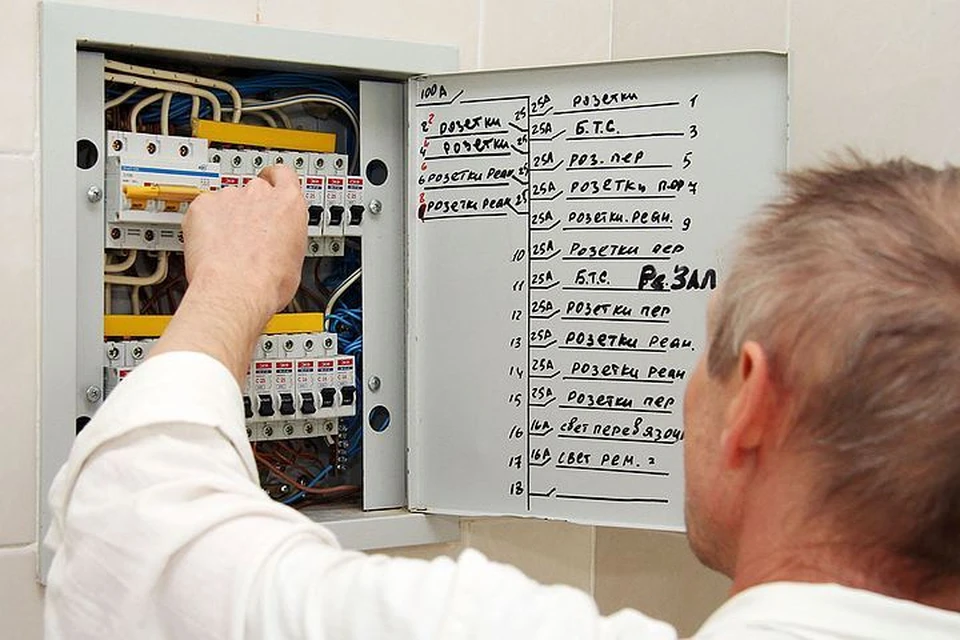 100A
2 розетки 25
4 розетки 25
6 розетки Реан 25
8 розетки Реан 25
25А розетки 1
25А Б.Т.С. 3
25А роз. пер 5
25А розетки пер 7
25А розетки. реан. 9
10 25А розетки пер
11 25А Б.Т.С. Ре.ЗАЛ
12 25А розетки пер
13 25А розетки реан.
14 25А розетки реан
15 25А розетки пер
16 16А свет перевязоч
17 16А свет рем. 2
18